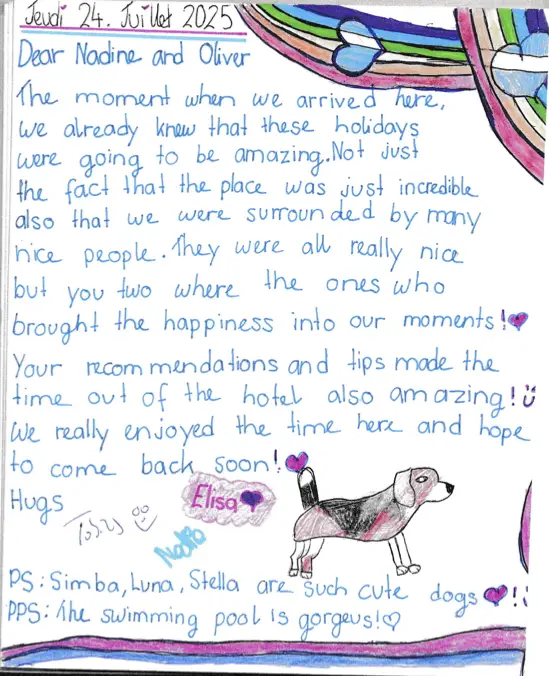 Jeudi 24. Juillet 2025
Dear Nadine and Oliver
The moment when we arrived here,
we already knew that these holidays
were going to be amazing. Not just
the fact that the place was just incredible
also that we were surrounded by many
nice people. They were all really nice
but you two where the ones who
brought the happiness into our moments!
Your recommendations and tips made the
time out of the hotel also amazing!
We really enjoyed the time here and hope
to come back soon!
Hugs
Elisa
PS: Simba, Luna, Stella are such cute dogs !
PPS: The swimming pool is gorgeus!